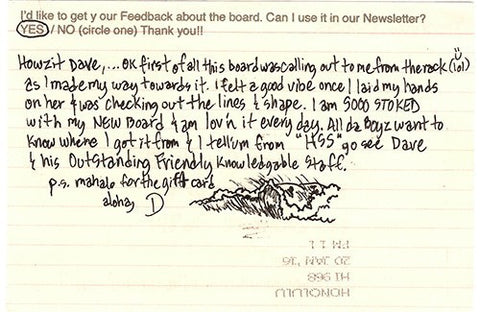 I'd like to get y our Feedback about the board. Can I use it in our Newsletter?
YES / NO (circle one) Thank you!!
Howzit Dave,... OK first of all this board was calling out to me from the rack (lol)
as I made my way towards it. I felt a good vibe once I laid my hands
on her & was checking out the lines & shape. I am SOOO STOKED
with my NEW Board & am lov'n it every day. All da Boyz want to
know where I got it from & I tell'um from "HSS" go see Dave
& his Outstanding Friendly Knowledgable Staff.
p.s. mahalo for the gift card
aloha, D
HONOLULU
HI 968
20 JAN '16
PM 1 L